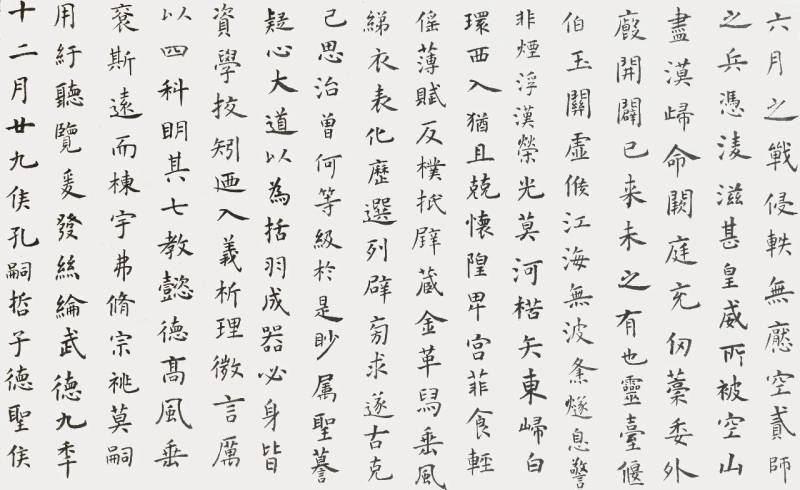 六月之戰侵軼無懕空貳師
之兵憑淩滋甚皇威所被空山
盡漠歸命闕庭充仞藁委外
廄開闢已来未之有也靈臺偃
伯玉關虛候江海無波烽燧息警
非煙浮漢榮光莫河楛矢東歸白
環西入猶且兢懷隍卑宮菲食輕
徭薄賦反樸抵璧藏金革舄垂風
綈衣表化歷選列辟旁求遂古克
己思治曽何等級於是眇属聖謩
疑心大道以為括羽成器必身皆
資學挍矧迺入義析理微言厲
以四科明其七教懿德髙風垂
裒斯遠而棟宇弗脩宗祧莫嗣
用紆聽覽爰發絲綸武德九秊
十二月廿九俟孔嗣哲子德聖俟